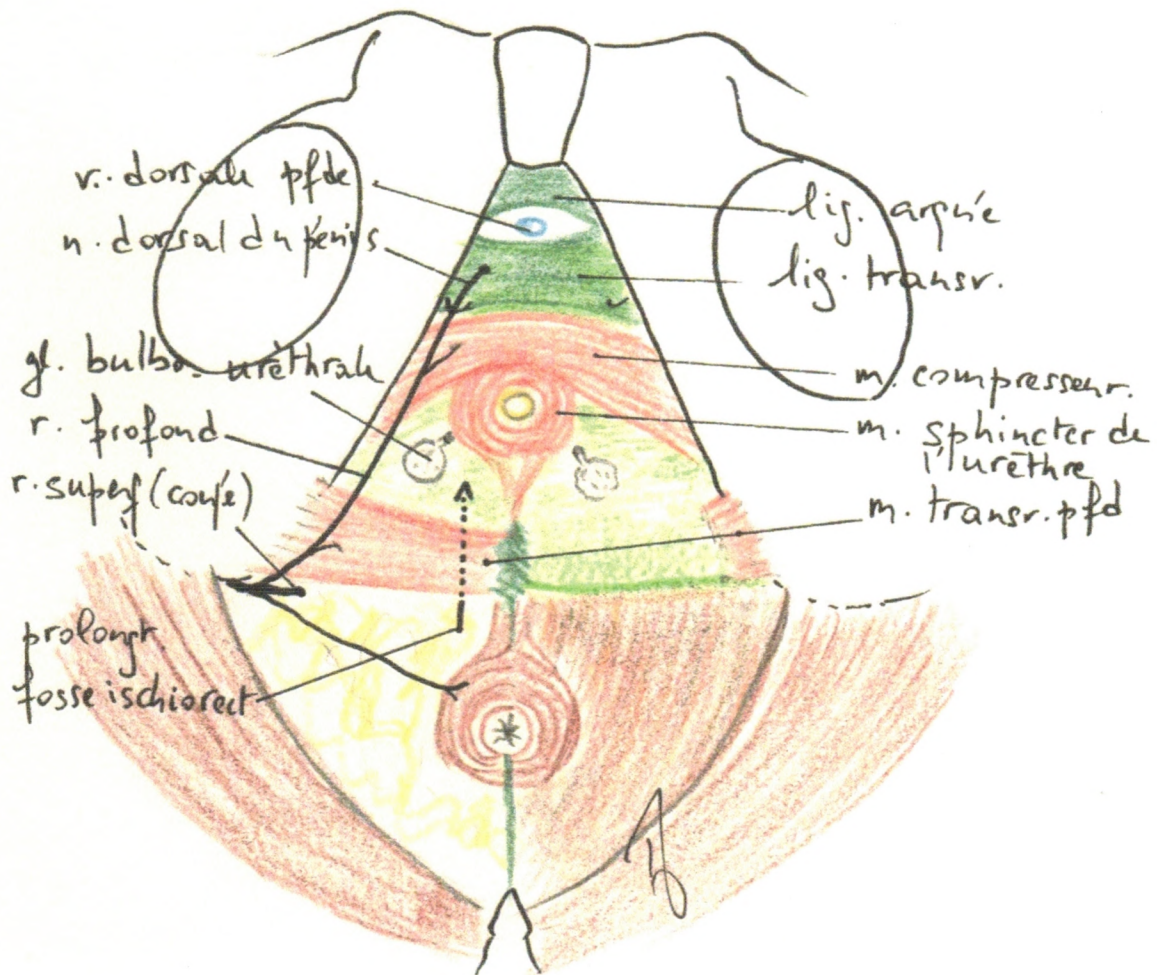 v. dorsale pfde
n. dorsal du pénis
gl. bulbo-uréthrale
r. profond
r. superf (coupé)
prolongt
fosse ischiorect
lig. arquée
lig. transv.
m. compresseur.
m. sphincter de
l'urèthre
m. transv. pfd